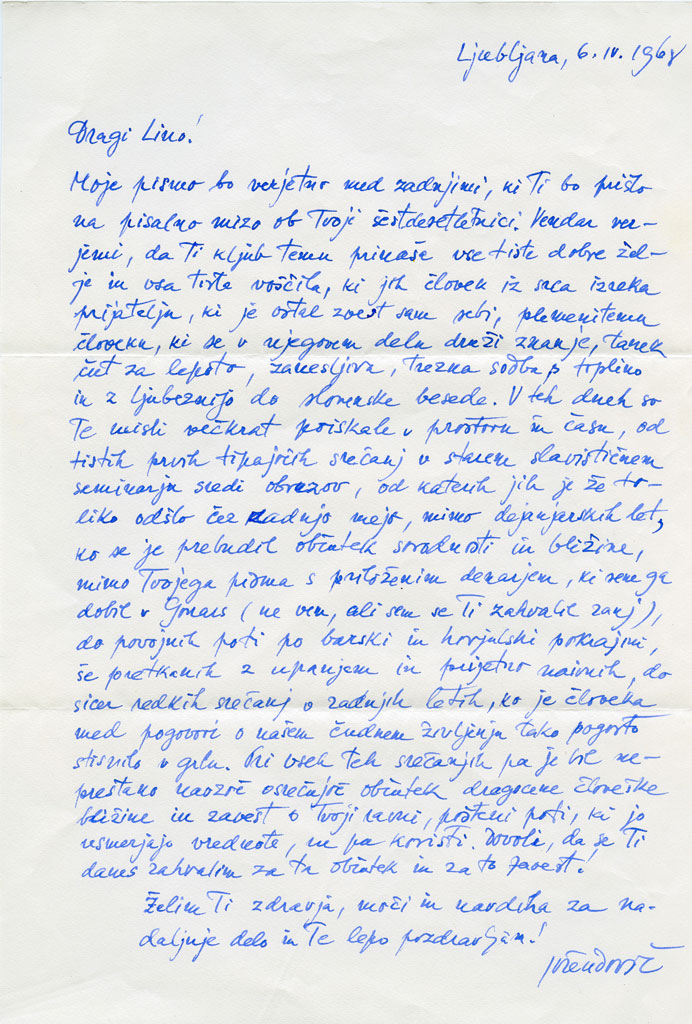 Ljubljana, 6. IV. 1968
Dragi Lino!
Moje pismo bo verjetno med zadnjimi, ki Ti bo prišlo
na pisalno mizo ob Tvoji šestdesetletnici. Vendar ver-
jemi, da Ti kljub temu prinaše vse tiste dobre žel-
je in vsa tista voščila, ki jih človek iz srca izreka
prijatelju, ki je ostal zvest sam sebi, plemenitemu
človeku, ki se v njegovem delu druži znanje, tanek
čut za lepoto, zanesljiva, trezna sodba s toplino
in z ljubeznijo do slovenske besede. V teh dneh so
Te misli večkrat poiskale v prostoru in času, od
tistih prvih tipajočih srečanj v starem slavističnem
seminarju sredi obrazov, od katerih jih je že to-
liko odšlo čez zadnjo mejo, mimo dejanjarskih let,
ko se je prebudil občutek sorodnosti in bližine,
mimo Tvojega pisma s priloženim denarjem, ki sem ga
dobil v Gonars (ne vem, ali sem se Ti zahvalil zanj),
do povojnih poti po barski in horjulski pokrajini,
še pretkanih z upanjem in prijetno naivnih, do
sicer redkih srečanj v zadnjih letih, ko je človeka
med pogovori o našem čudnem življenju tako pogosto
stisnilo v grlu. Pri vseh teh srečanjih pa je bil ne-
prestano navzoč osrečujoč občutek dragocene človeške
bližine in zavest o Tvoji ravni, pošteni poti, ki jo
usmerjajo vrednote, ne pa koristi. Dovoli, da se Ti
danes zahvalim za ta občutek in za to zavest!
Želim Ti zdravja, moči in navdiha za na-
daljnje delo in Te lepo pozdravljam!